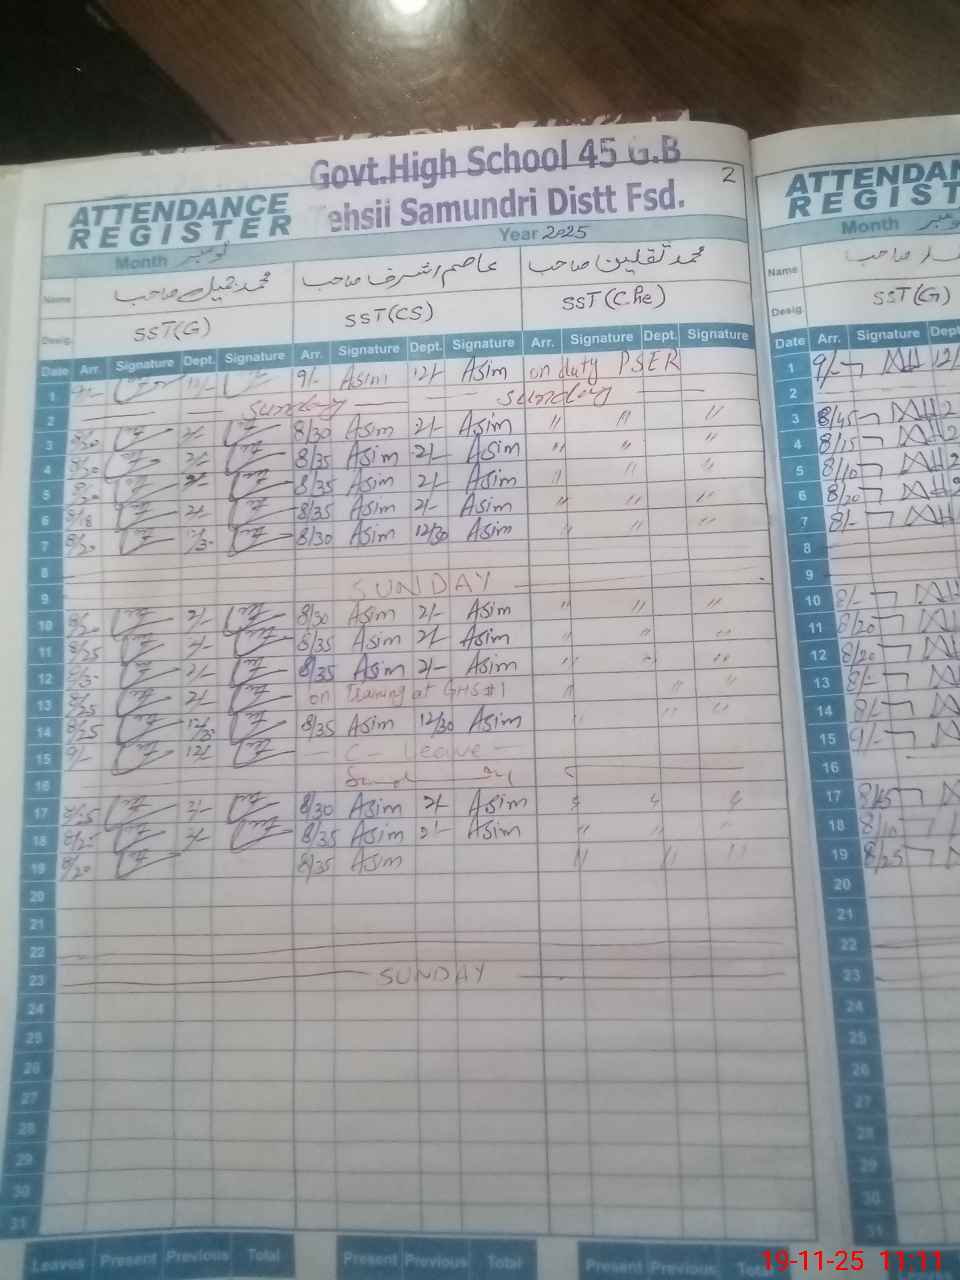 Govt.High School 45 G.B
Tehsil Samundri Distt Fsd.
2
ATTENDANCE REGISTER
Month نومبر Year 2025
Name محمد جمیل صاحب عاصم اشرف صاحب محمد ثقلین صاحب
Desig. SST(G) SST(CS) SST(C.Phe)
Date Arr. Signature Dept. Signature Arr. Signature Dept. Signature Arr. Signature Dept. Signature
1 9/- 12/- 9/- Asim 12/- Asim on duty PSER
2 Sunday Sunday
3 8/30 2/- 8/30 Asim 2/- Asim " " "
4 8/30 2/- 8/35 Asim 2/- Asim " " "
5 8/20 2/- 8/35 Asim 2/- Asim " " "
6 8/18 2/- 8/35 Asim 2/- Asim " " "
7 8/20 12/30 8/30 Asim 12/30 Asim " " "
8
9 SUNDAY
10 8/20 2/- 8/30 Asim 2/- Asim " " "
11 8/25 2/- 8/35 Asim 2/- Asim " " "
12 8/30 2/- 8/35 Asim 2/- Asim " " "
13 8/25 2/- on Training at GHS #1 " " "
14 8/25 12/30 8/35 Asim 12/30 Asim " " "
15 9/- 12/ - C - Leave -
16 Sunday
17 8/25 2/- 8/30 Asim 2/- Asim " " "
18 8/25 2/- 8/35 Asim 2/- Asim " " "
19 8/20 8/35 Asim " " "
20
21
22
23 SUNDAY
24
25
26
27
28
29
30
31
Leaves Present Previous Total Present Previous Total Present Previous Total
ATTENDAN
REGIST
Month نومبر
Name
Desig. SST(G)
Date Arr. Signature Dept
1 9/- 12/
2
3 8/45 2
4 8/15 2
5 8/10 2
6 8/20
7 8/-
8
9
10 8/-
11 8/20
12 8/20
13 8/-
14 8/-
15 9/-
16
17 8/15
18 8/10
19 8/25
20
21
22
23
24
25
26
27
28
29
30
31
19-11-25 11:11